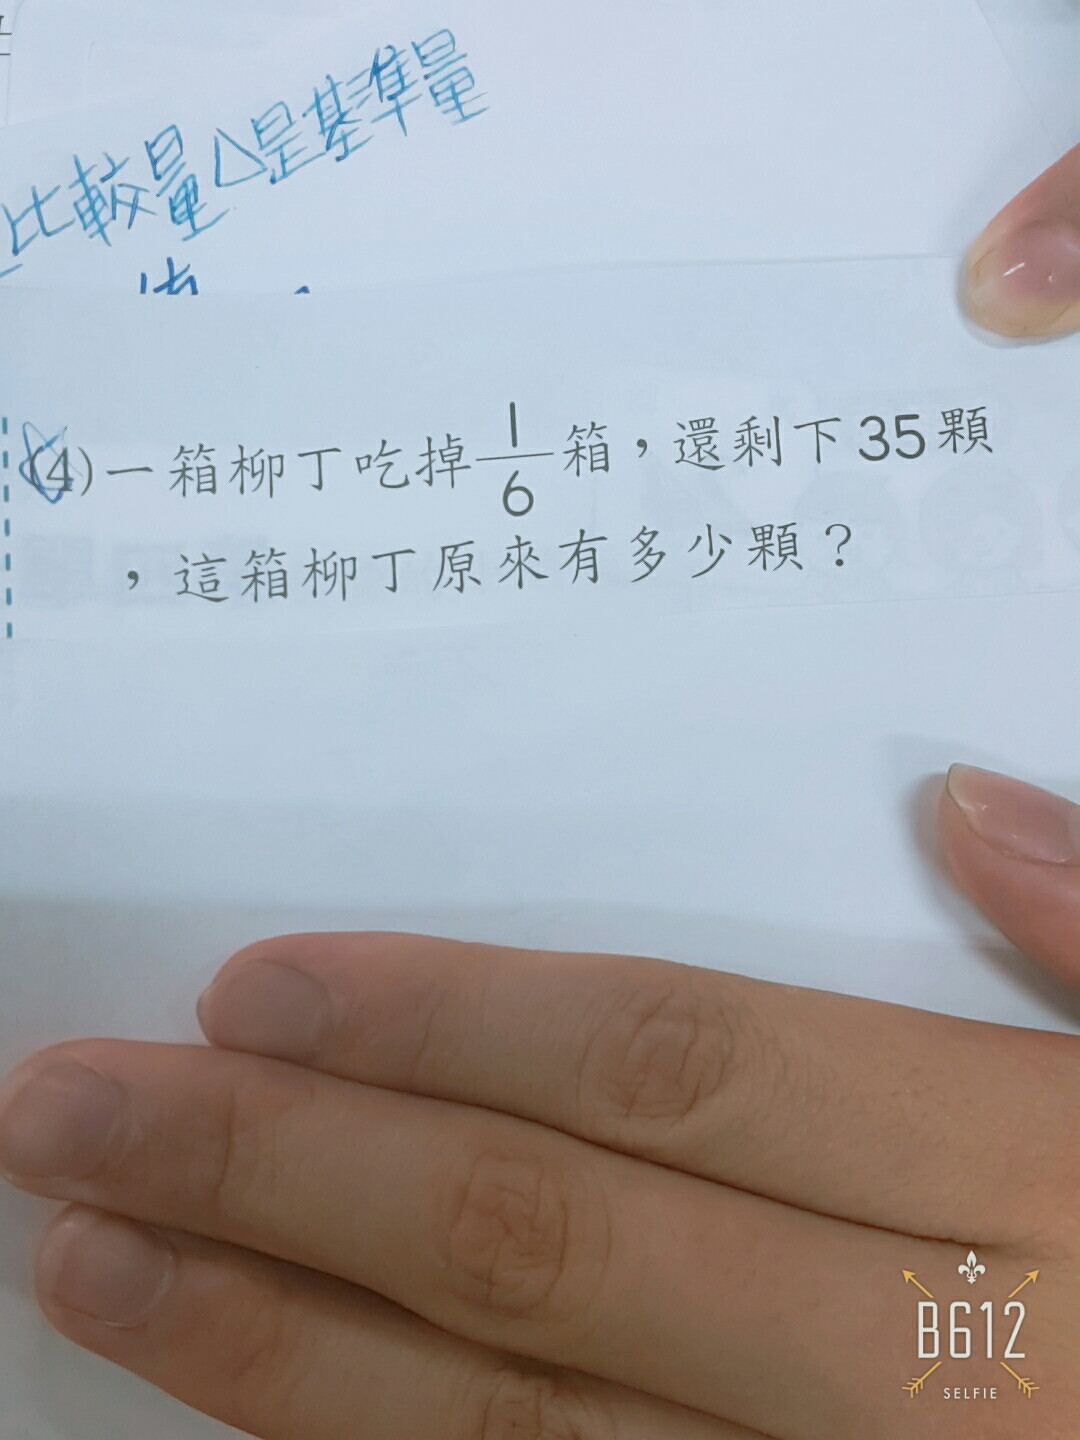 比較量△是基準量
(4)一箱柳丁吃掉1/6箱，還剩下35顆
，這箱柳丁原來有多少顆？
B612
SELFIE